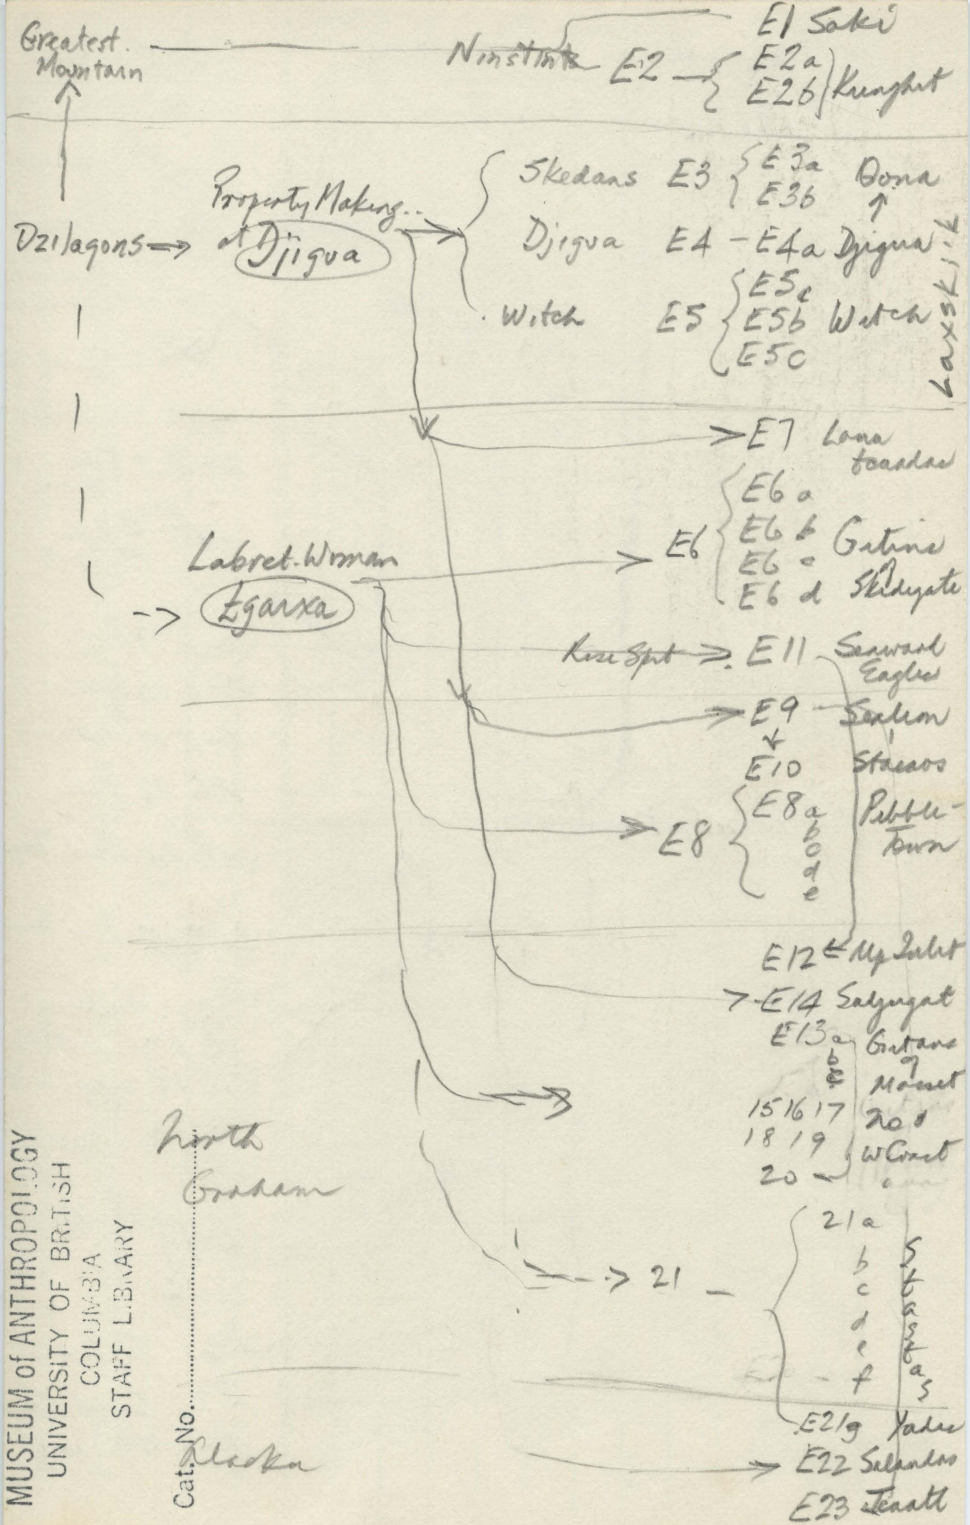 Greatest. Mountain Ninstints E2 E1 Saki
E2a
E2b Kunghit
Dzilagons Property Making..
at Djigua
Skedans E3 E3a Qona
E3b
Djigua E4 - E4a Djigua
Witch E5 E5a
E5b Witch
E5c
Laxskik
E7 Lana
Labret. Woman
Łgarxa
E6 E6 a
E6 b Gitins
E6 c
E6 d Skidegate
Rose Spit E11 Seaward
Eagles
E9 Sealion
E10 Stasaos
E8 E8a Pebble-
b Town
c
d
e
E12 Up Inlet
E14 Saljugat
E13a Gitans
b
c Masset
15 16 17 No
18 19 W Coast
20
North
Graham
21 21a
b
c
d
e
f
Stastas
E21g Yadas
Alaska
E22 Salandas
E23
MUSEUM of ANTHROPOLOGY
UNIVERSITY OF BRITISH
COLUMBIA
STAFF LIBRARY
Cat. No.